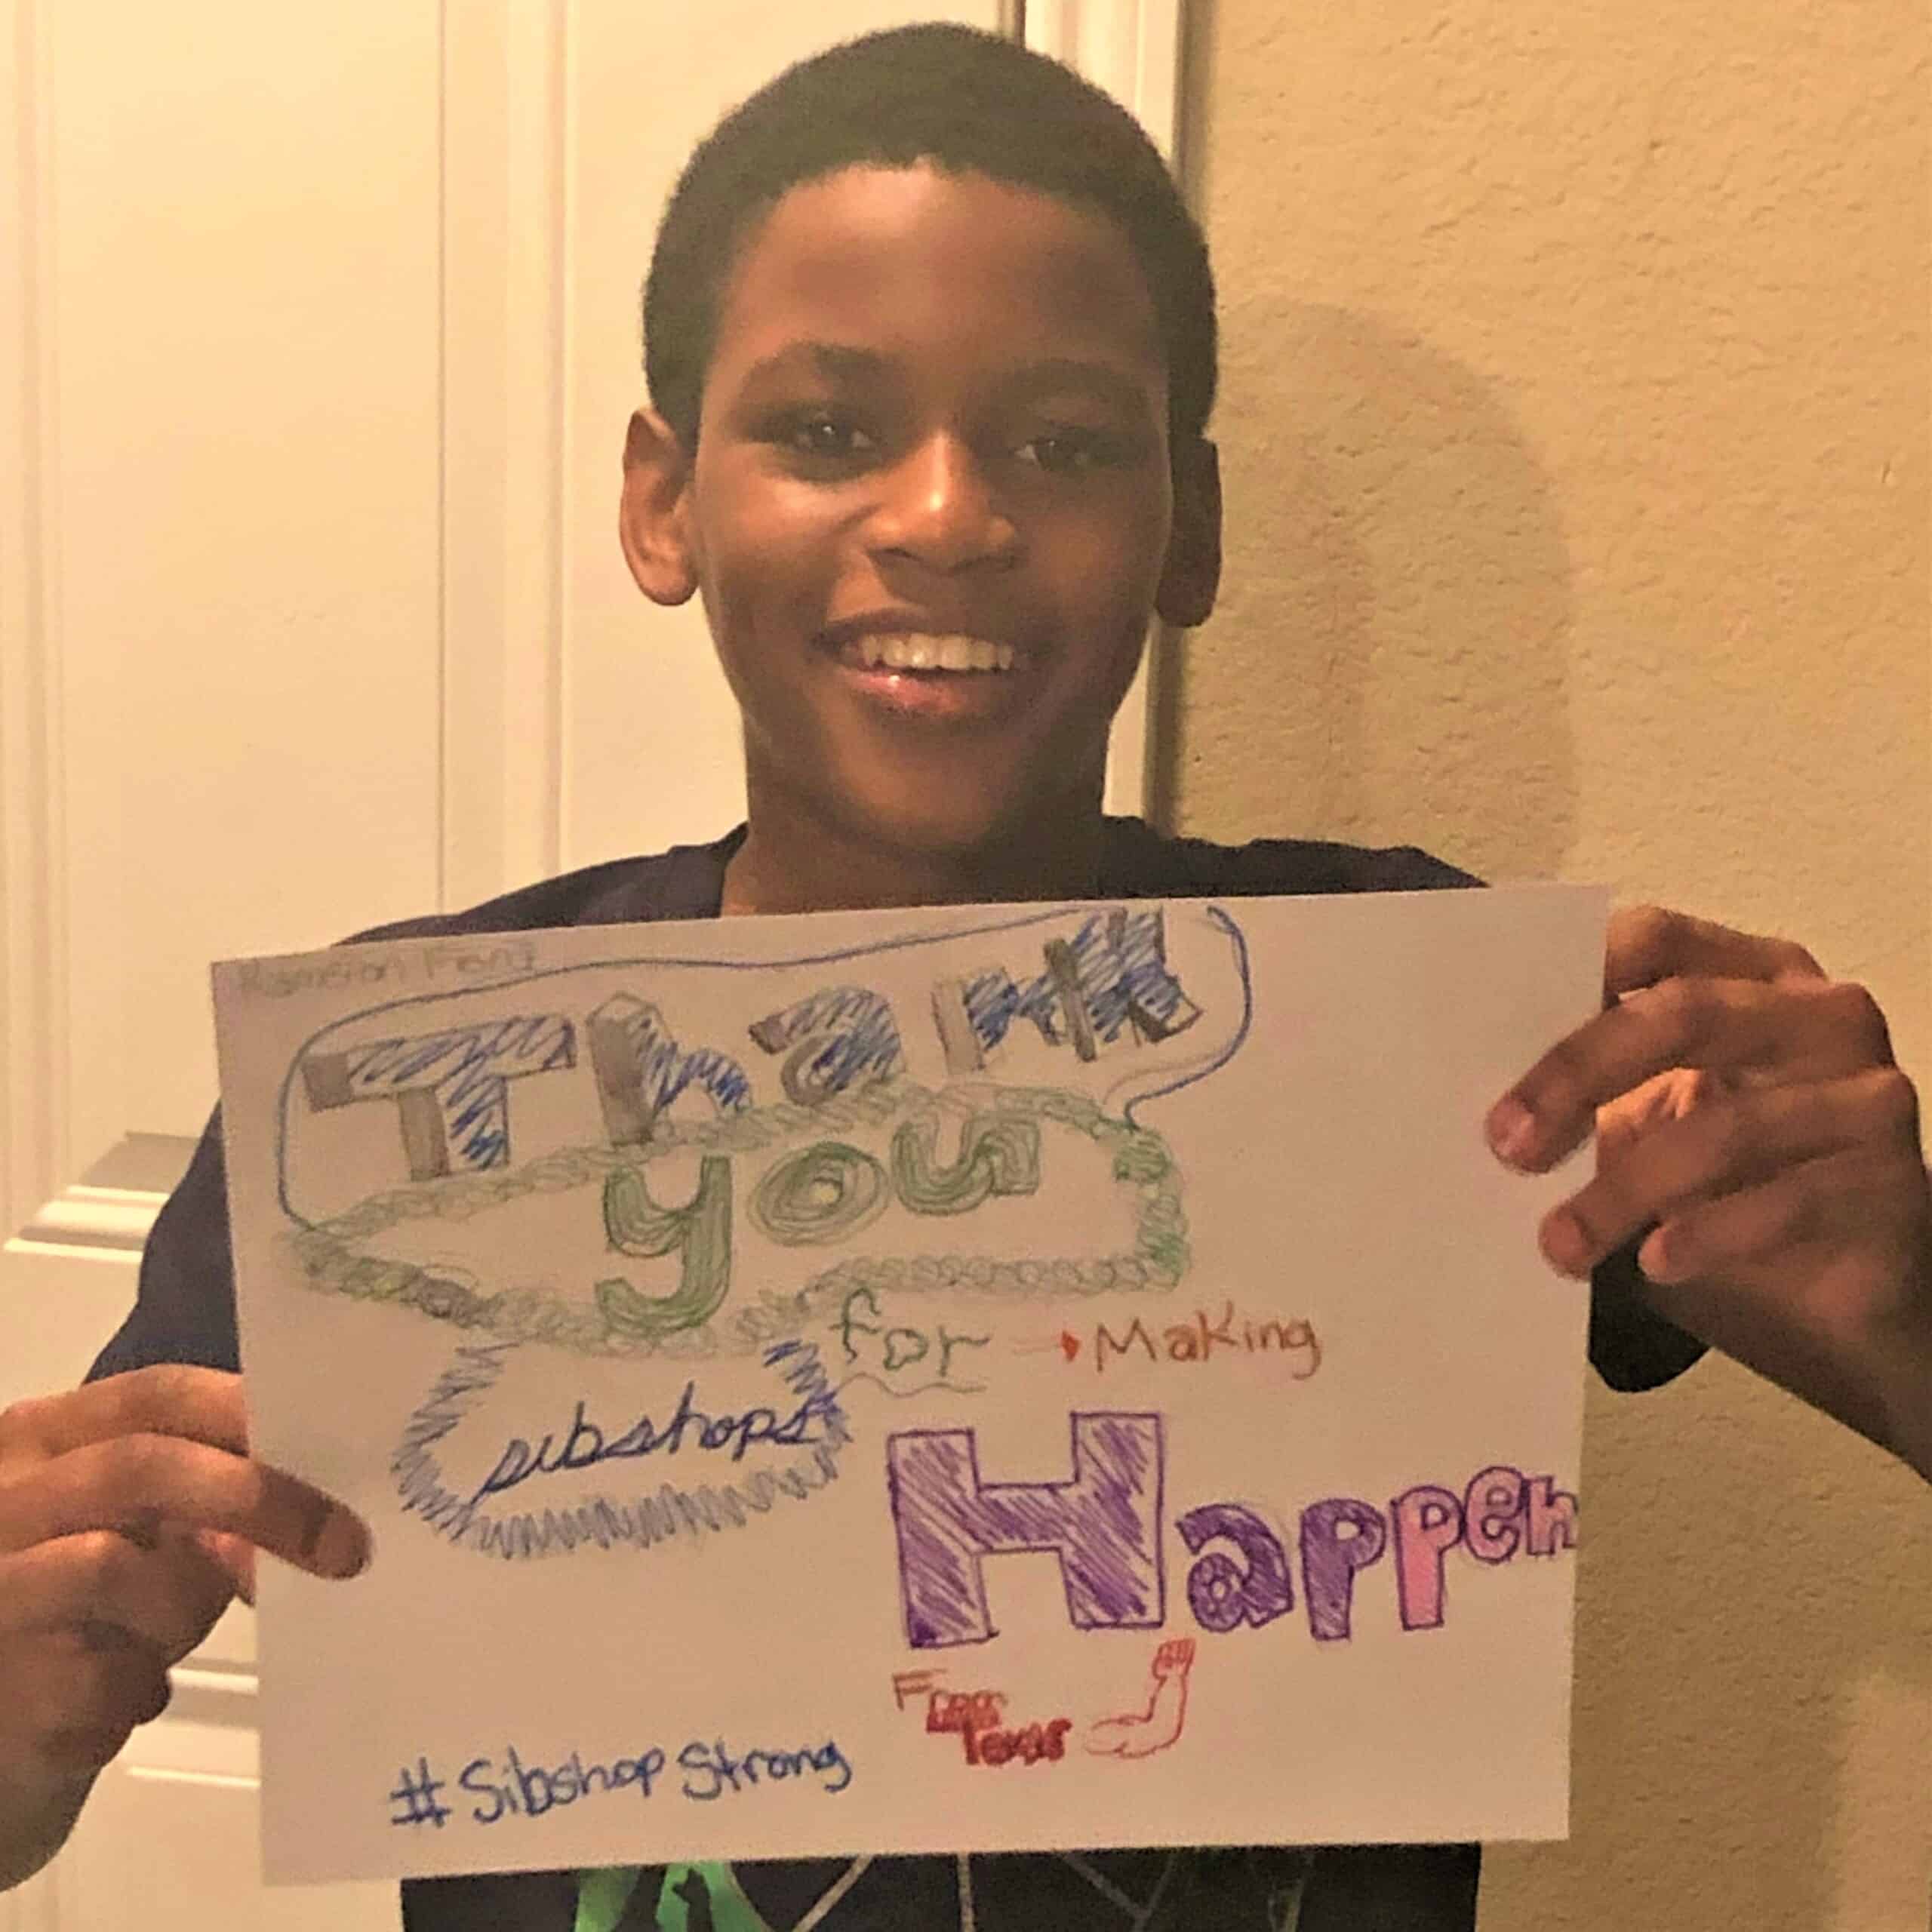 Thank
you
for → Making
sibshops
Happen
From
Texas
#Sibshop Strong